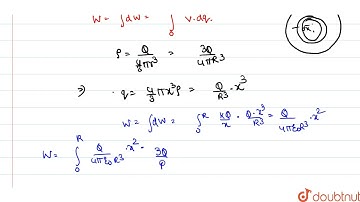 W = ∫dW = ∫₀ V.dq.
x.
ρ = Q / (4/3 πr³) = 3Q / 4πR³
⇒ q = 4/3 πx³ρ = Q/R³ · x³
W = ∫dW = ∫₀ᴿ KQ/x · Q·x³/R³ = Q/4πε₀R³ · x²
W = ∫₀ᴿ Q/4πε₀R³ · x² · 3Q/ρ
doubtnut